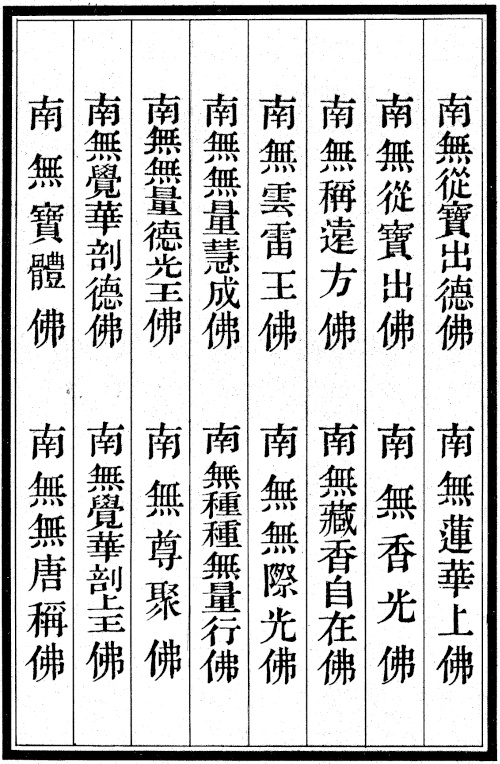 南無從寶出德佛
南無蓮華上佛
南無從寶出佛
南無香光佛
南無稱遠方佛
南無藏香自在佛
南無雲雷王佛
南無無際光佛
南無無量慧成佛
南無種種無量行佛
南無無量德光王佛
南無尊聚佛
南無覺華剖德佛
南無覺華剖上王佛
南無寶體佛
南無無唐稱佛